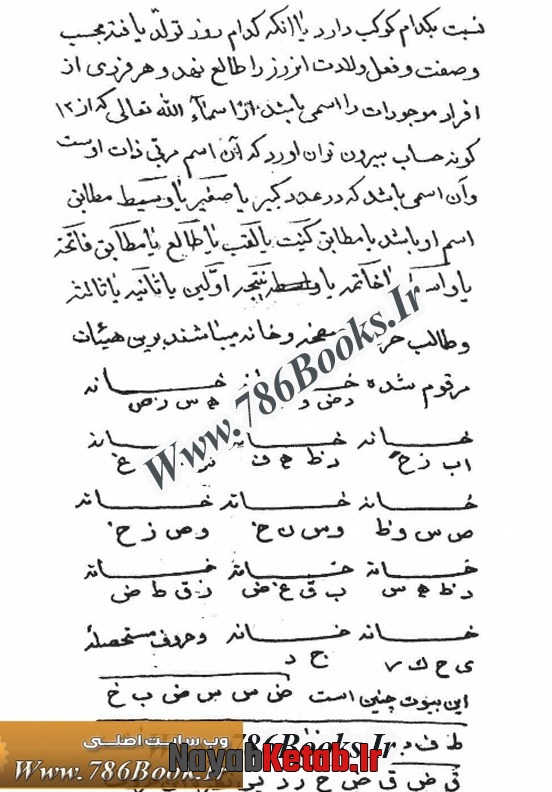 نسبت بکدام کوکب دارد یا انکه کدام روز تولّد یافته بحسب
وصفت و فعل ولادت انروز را طالع نهد و هر فردی از
افراد موجودات را اسمی باشد از اسمآء الله تعالی که از ۱۲
کونه حساب بیرون توان اورد که آن اسم مربّی ذات اوست
وآن اسمی باشد که در عدد کبیر یا صغیر یا وسیط مطابق
اسم او باشد یا مطابق کنیت یا لقب یا طالع یا مطابق فاتحة
یا خاتمه یا واسطه نتیجه اوّلین یا ثانیه یا ثالثه
و طالب و خانه میباشند برین هیئات
مرقوم شده خانه خانه
خانه خانه خانه
اب ز خ د ظ ه ف غ
خانه خانه خانه
ص س و ظ و س ن خ و ص ز خ
خانه خانه خانه
د ظ ه س ب ق غ ض ز ق ط ض
خانه خانه و حروف مستحصلهٔ
ی ح ک ر ج د
این بیوت چنین است ض س س ض ب خ
ط ف
ق ض ق ص خ ر د
Www.786Books.Ir
Www.786Books.Ir
وب سایت اصلی
Www.786Book.Ir
NayabKetab.Ir